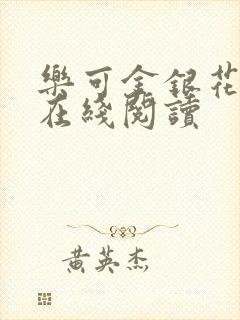 樂可金銀花
在綫閱讀
黄英杰